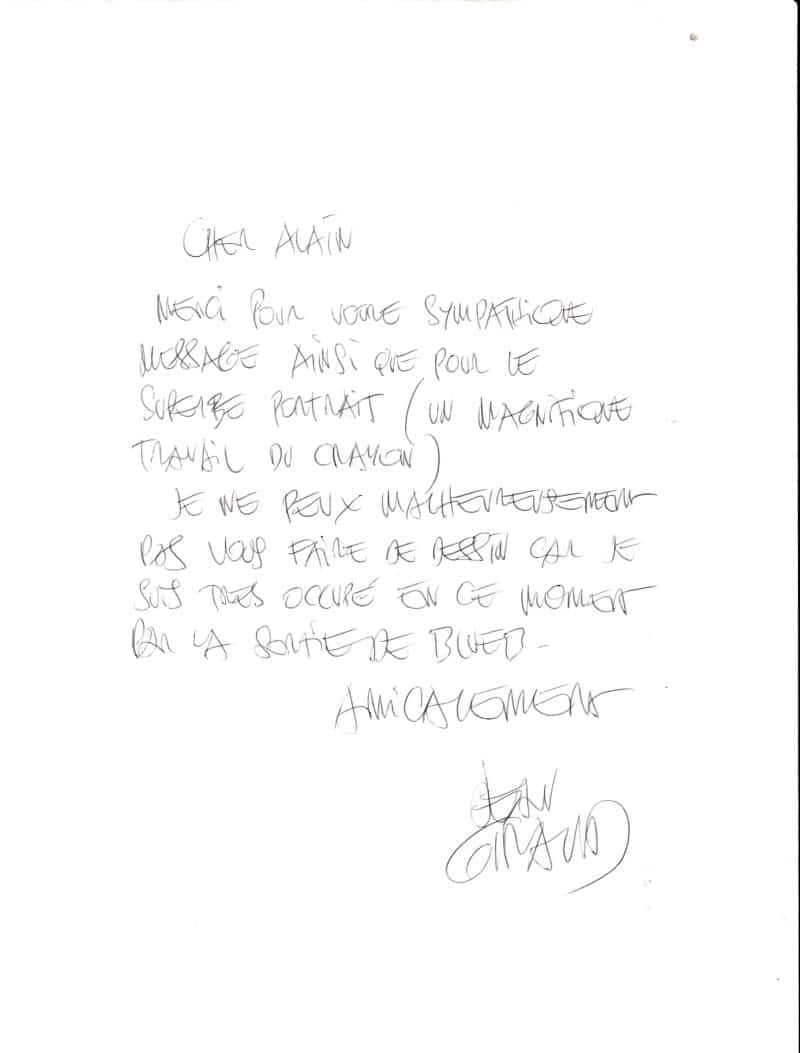 CHER ALAIN
MERCI POUR VOTRE SYMPATHIQUE
MESSAGE AINSI QUE POUR LE
SUPERBE PORTRAIT (UN MAGNIFIQUE
TRAVAIL DU CRAYON)
JE NE PEUX MALHEUREUSEMENT
PAS VOUS FAIRE DE DESSIN CAR JE
SUIS TRES OCCUPÉ EN CE MOMENT
PAR LA SORTIE DE BLUEB-
AMICALEMENT
JEAN
GIRAUD